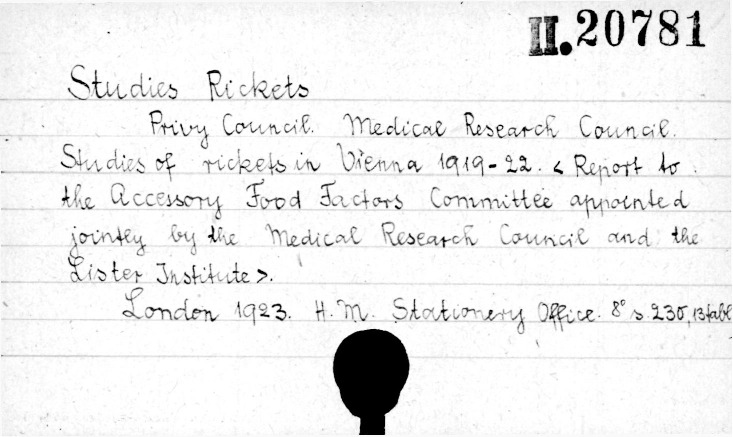 II. 20781
Studies Rickets
Privy Council. Medical Research Council.
Studies of rickets in Vienna 1919-22. < Report to
the Accessory Food Factors Committee appointed
jointly by the Medical Research Council and the
Lister Institute >.
London 1923. H. M. Stationery Office. 8° s. 230, 13 tabl